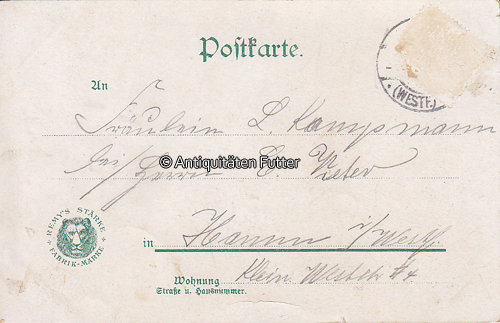 Postkarte.
(WESTF.)
An
Fräulein L. Kampsmann
bei Herrn C. Reber
© Antiquitäten Futter
REMY'S STÄRKE
FABRIK-MARKE
in Hamm i/Westf.
Wohnung Klein Weststr
Straße u. Hausnummer.